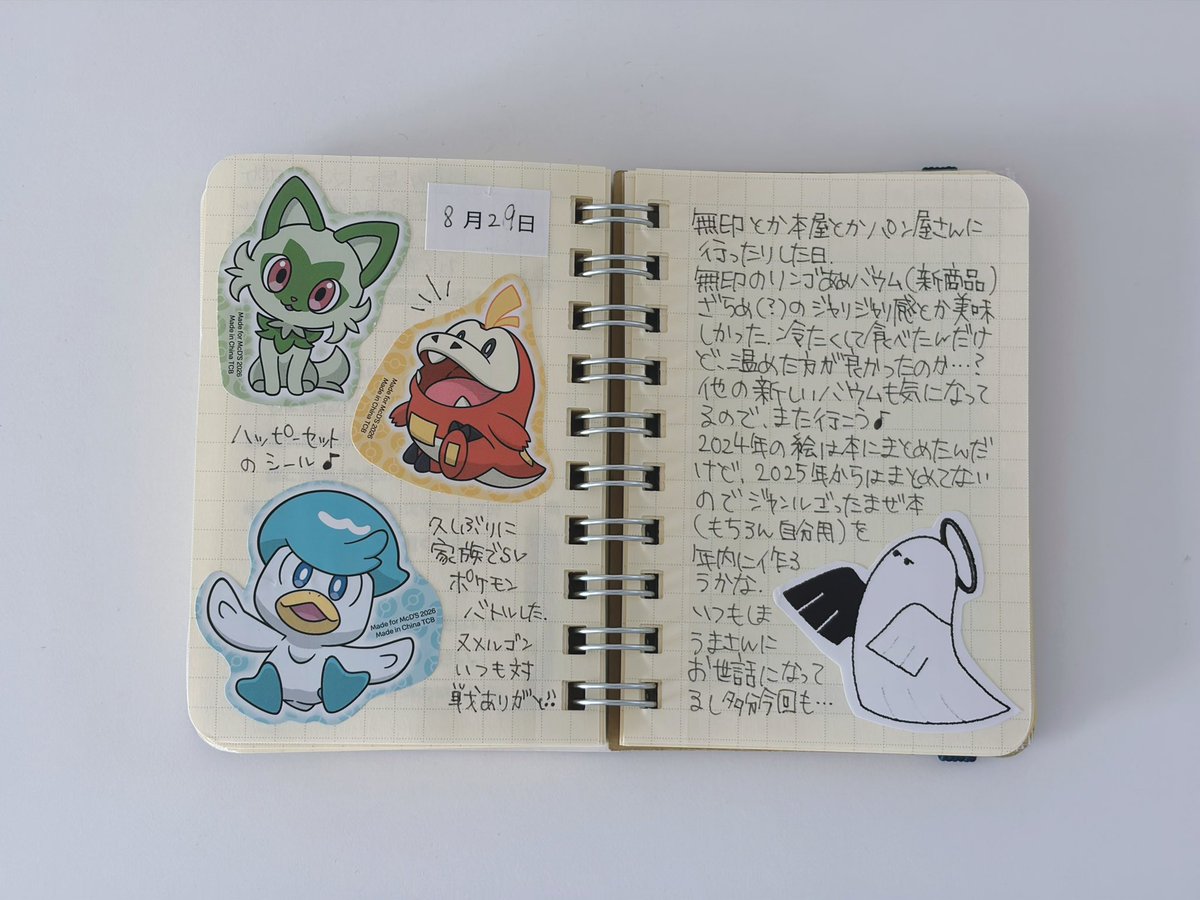 8月29日
Made for McD'S 2026
Made in China TCB
Made for McD'S 2026
Made in China TCB
ハッピーセット
のシール♪
Made for McD'S 2026
Made in China TCB
久しぶりに
家族でSV
ポケモン
バトルした.
ヌメルゴン
いつも対
戦ありがと!!
無印とか本屋とかパン屋さんに
行ったりした日.
無印のリンゴあめバウム(新商品)
ざらめ(?)のジャリジャリ感とか美味
しかった.冷たくして食べたんだけ
ど、温めた方が良かったのか…?
他の新しいバウムも気になって
るので、また行こう♪
2024年の絵は本にまとめたんだ
けど、2025年からはまとめてない
のでジャンルごったまぜ本
(もちろん自分用)を
年内に作ろ
うかな.
いつもしま
うまさんに
お世話になって
るし多分今回も…